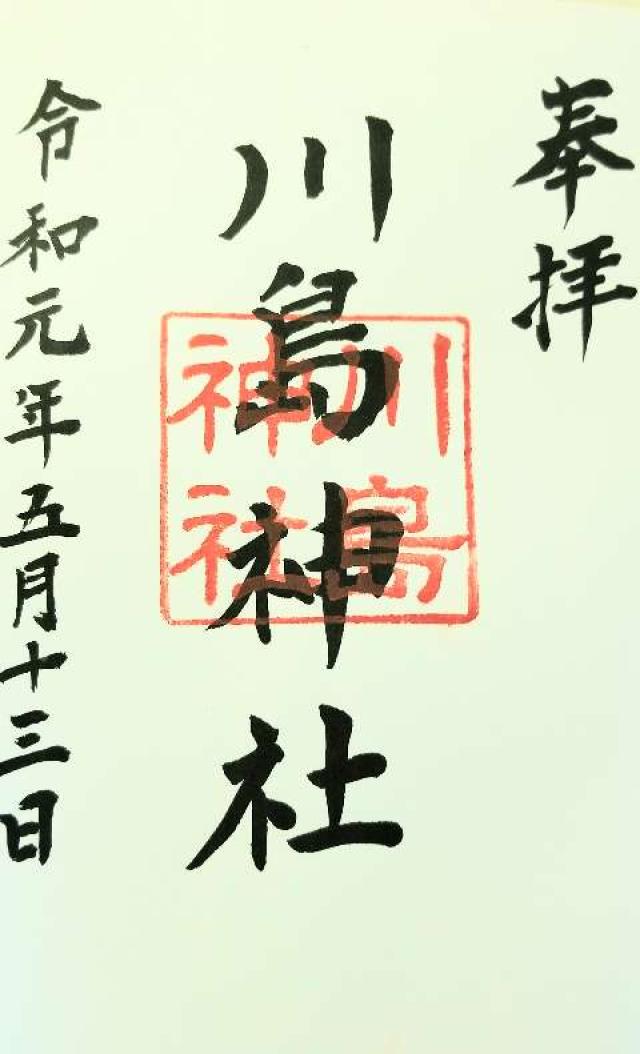 奉拝
川島神社
川島
神社
令和元年五月十三日